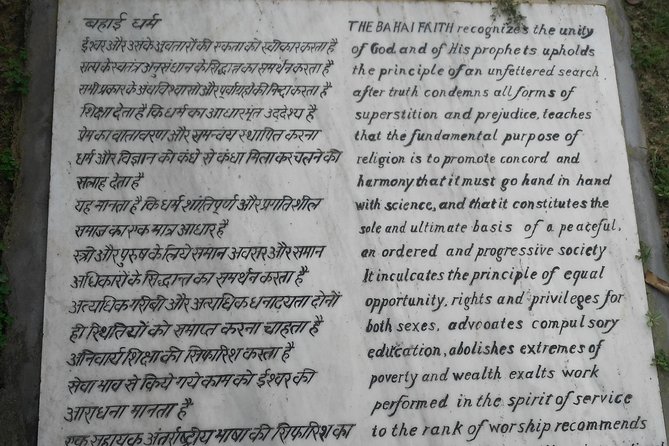 बहाई धर्म
ईश्वर और उसके अवतारों की एकता को स्वीकार करता है
सत्य के स्वतंत्र अनुसंधान के सिद्धान्त का समर्थन करता है
सभी प्रकार के अंधविश्वासों और पूर्वाग्रहों की निन्दा करता है
शिक्षा देता है कि धर्म का आधारभूत उद्देश्य है
प्रेम का वातावरण और समन्वय स्थापित करना
धर्म और विज्ञान को कंधे से कंधा मिलाकर चलने की
सलाह देता है
यह मानता है कि धर्म शांतिपूर्ण और प्रगतिशील
समाज का एक मात्र आधार है
स्त्री और पुरुष के लिये समान अवसर और समान
अधिकारों के सिद्धान्त का समर्थन करता है
अत्यधिक गरीबी और अत्यधिक धनाढयता दोनों
ही स्थितियों को समाप्त करना चाहता है
अनिवार्य शिक्षा की सिफारिश करता है
सेवा भाव से किये गये काम को ईश्वर की
आराधना मानता है
एक सहायक अंतर्राष्ट्रीय भाषा की सिफारिश का
THE BAHAI FAITH recognizes the unity
of God and of His prophets upholds
the principle of an unfettered search
after truth condemns all forms of
superstition and prejudice, teaches
that the fundamental purpose of
religion is to promote concord and
harmony that it must go hand in hand
with science, and that it constitutes the
sole and ultimate basis of a peaceful,
an ordered and progressive society
It inculcates the principle of equal
opportunity, rights and privileges for
both sexes, advcoates compulsory
education, abolishes extremes of
poverty and wealth exalts work
performed in the spirit of service
to the rank of worship recommends